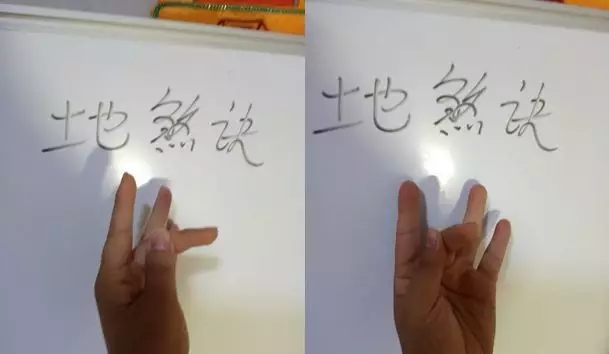 地煞诀
地煞诀